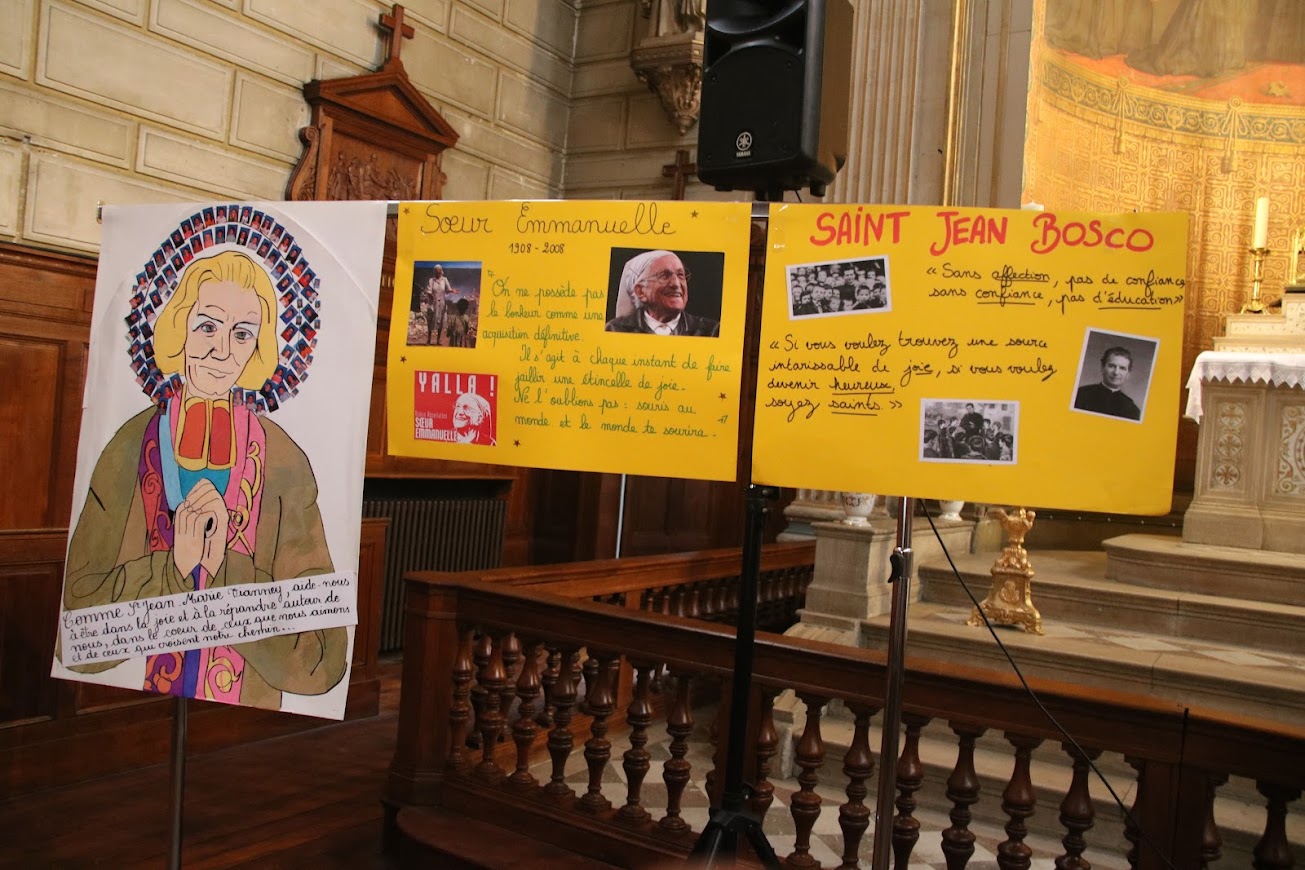 Comme St Jean-Marie Vianney, aide-nous
à être dans la joie et à la répandre autour de
nous, dans le coeur de ceux que nous aimons
et de ceux qui croisent notre chemin...
Sœur Emmanuelle
1908 - 2008
"On ne possède pas
le bonheur comme une
acquisition définitive.
Il s'agit à chaque instant de faire
jaillir une étincelle de joie.
Ne l'oublions pas : souris au
monde et le monde te sourira."
YALLA !
SŒUR
EMMANUELLE
YAMAHA
SAINT JEAN BOSCO
« Sans affection, pas de confiance
sans confiance, pas d'éducation »
« Si vous voulez trouvez une source
intarissable de joie, si vous voulez
devenir heureux,
soyez saints. »